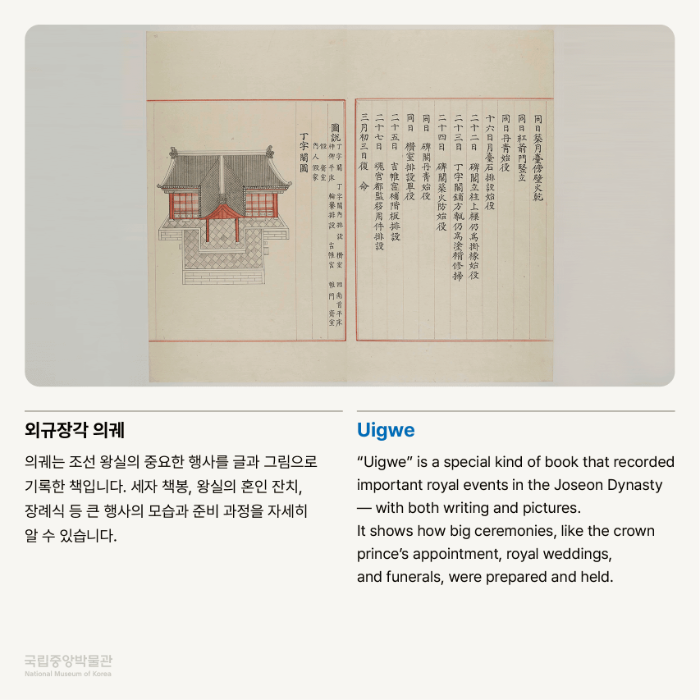 同日築月臺傍壁火乾
同日紅箭門竪立
同日丹靑始役
十六日月臺石排設始役
二十二日 碑閣立柱上樑仍爲掛椽始役
二十三日 丁字閣鋪方甎仍爲塗褙修掃
二十四日 碑閣築火防始役
同日 碑閣丹靑始役
同日 欑室排設畢役
二十五日 吉帷宮補階板排設
二十七日 魂宮都監移用件排設
三月初三日復 命
圖說
丁字閣圖
외규장각 의궤
의궤는 조선 왕실의 중요한 행사를 글과 그림으로
기록한 책입니다. 세자 책봉, 왕실의 혼인 잔치,
장례식 등 큰 행사의 모습과 준비 과정을 자세히
알 수 있습니다.
Uigwe
“Uigwe” is a special kind of book that recorded
important royal events in the Joseon Dynasty
— with both writing and pictures.
It shows how big ceremonies, like the crown
prince’s appointment, royal weddings,
and funerals, were prepared and held.
국립중앙박물관
National Museum of Korea